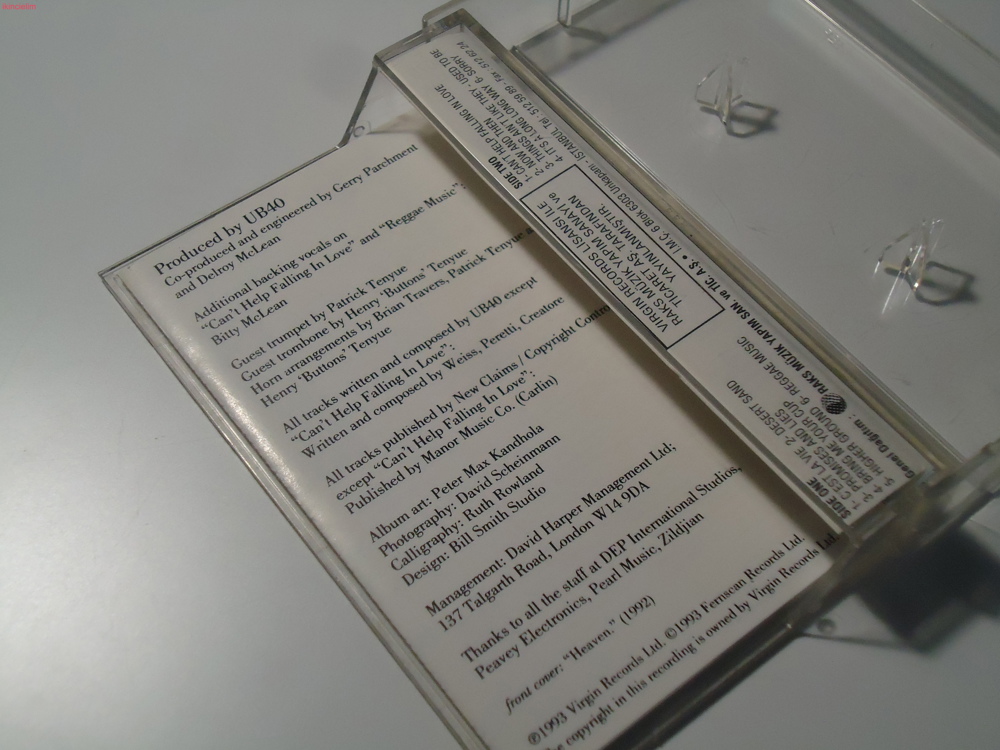 Produced by UB40
Co-produced and engineered by Gerry Parchment
and Delroy McLean
Additional backing vocals on
"Can't Help Falling In Love" and "Reggae Music":
Bitty McLean
Guest trumpet by Patrick Tenyue
Guest trombone by Henry 'Buttons' Tenyue
Horn arrangements by Brian Travers, Patrick Tenyue
Henry 'Buttons' Tenyue
All tracks written and composed by UB40 except
"Can't Help Falling In Love":
Written and composed by Weiss, Peretti, Creatore
All tracks published by New Claims / Copyright Contro
except "Can't Help Falling In Love":
Published by Manor Music Co. (Carlin)
Album art: Peter Max Kandhola
Photography: David Scheinmann
Calligraphy: Ruth Rowland
Design: Bill Smith Studio
Management: David Harper Management Ltd;
137 Talgarth Road, London W14 9DA
Thanks to all the staff at DEP International Studios,
Peavey Electronics, Pearl Music, Zildjian
front cover: "Heaven." (1992)
℗1993 Virgin Records Ltd. ©1993 Fernscan Records Ltd.
copyright in this recording is owned by Virgin Records Ltd.
SIDE ONE
1- C'EST LA VIE 2- DESERT SAND
3- PROMISES AND LIES
4- BRING ME YOUR CUP
5- HIGHER GROUND 6- REGGAE MUSIC
VIRGIN RECORDS LISANSI ILE
RAKS MÜZIK YAPIM SANAYI ve
TICARET AŞ. TARAFINDAN
YAYINLANMISTIR.
SIDE TWO
1- CAN'T HELP FALLING IN LOVE
2- NOW AND THEN
3- THINGS AIN'T LIKE THEY - USED TO BE
4- IT'S A LONG LONG WAY 6- SORRY
Genel Dağıtım : RAKS MÜZİK YAPIM SAN. ve TİC. A.Ş. • İ.M.Ç. 6.Blok 6303 Unkapanı - İSTANBUL Tel : 512 59 89 - Fax : 512 67 24